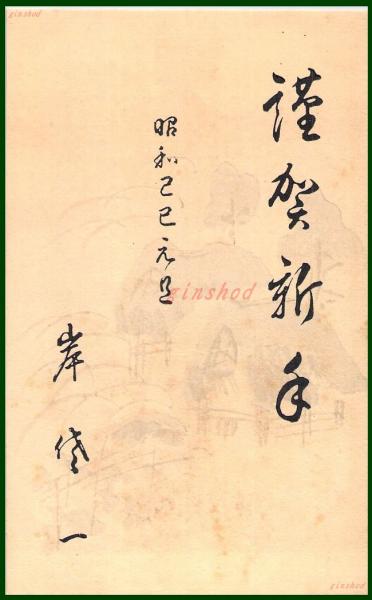 ginshod
謹賀新年
昭和己巳元旦
岸 一
ginshod
ginshod